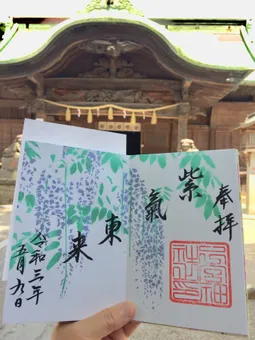 奉拝
紫氣
東来
令和三年
五月九日